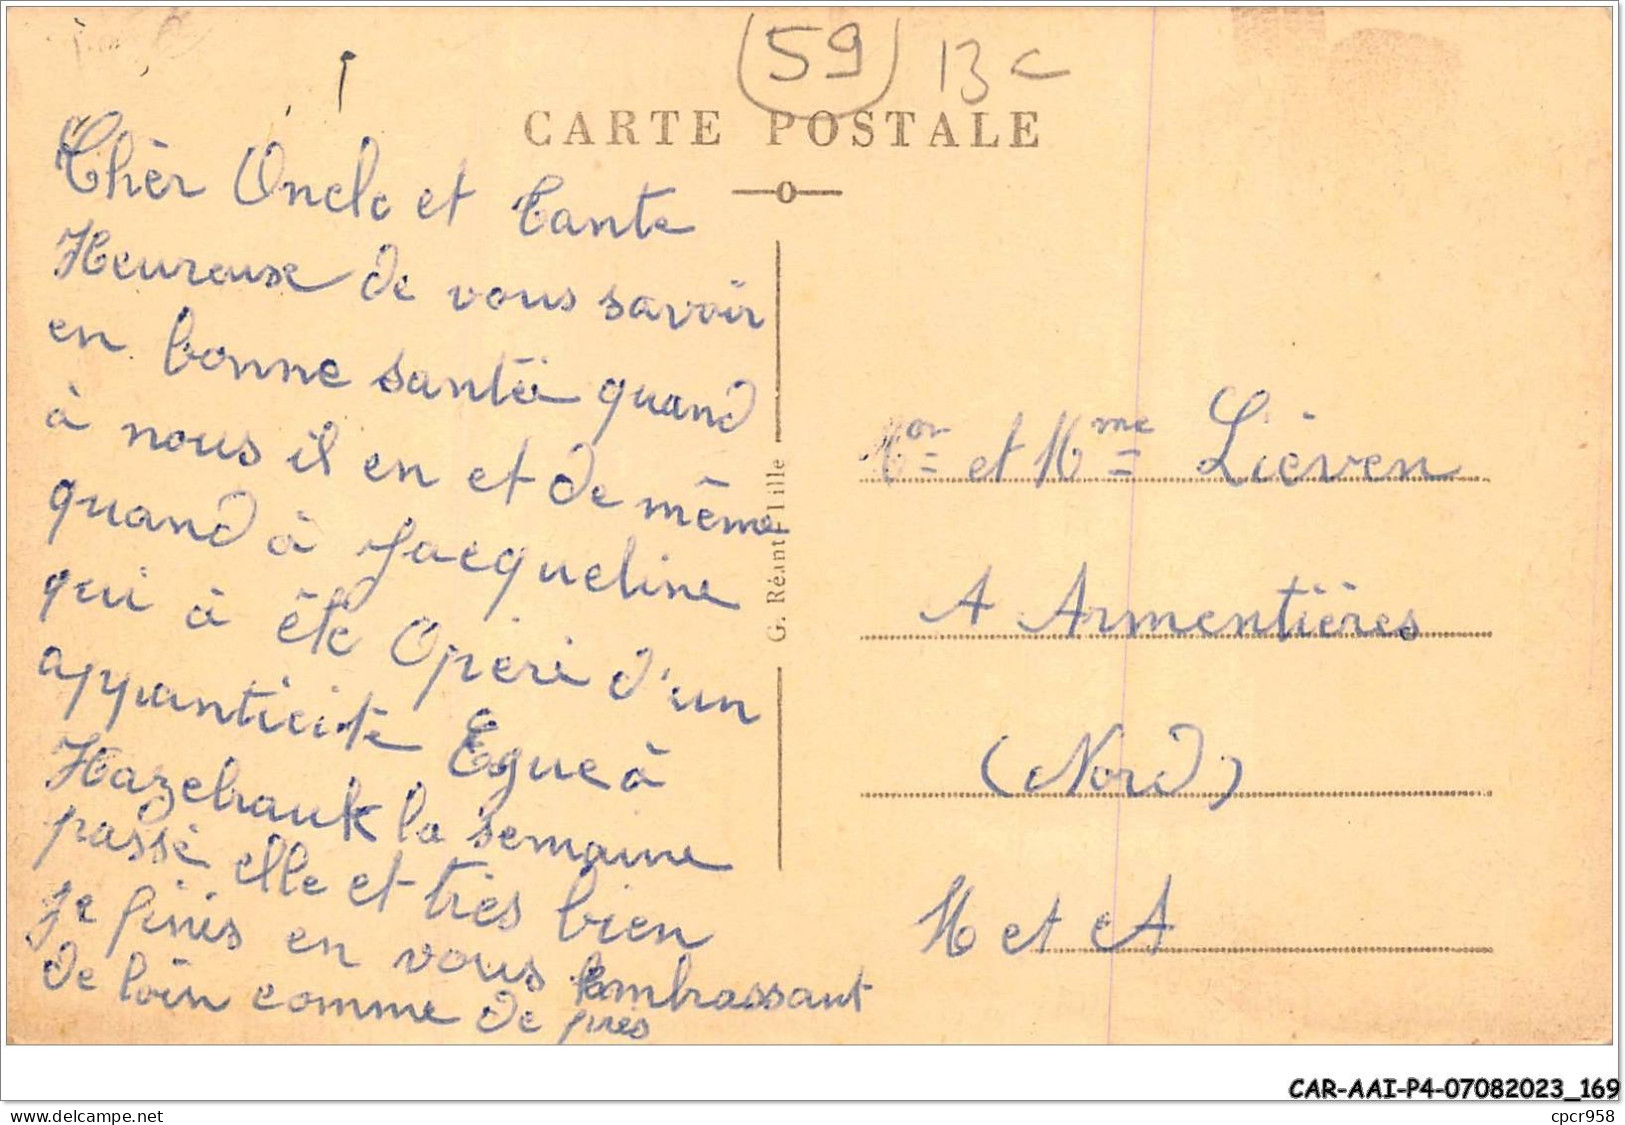 (59) 13 c
CARTE POSTALE
Chèr Oncle et Tante
Heureuse de vous savoir
en bonne santé quand
à nous il en et de même
quand à Jacqueline
qui à été Opéré d'un
appanticite Egue à
Hazebrauk la semaine
passé elle et très bien
je finis en vous Embrassant
de loin comme de près
G. Réant Lille
Mon et Mme Lièven
A Armentières
(Nord)
M et A
CAR-AAI-P4-07082023_169
www.delcampe.net
cpcr958